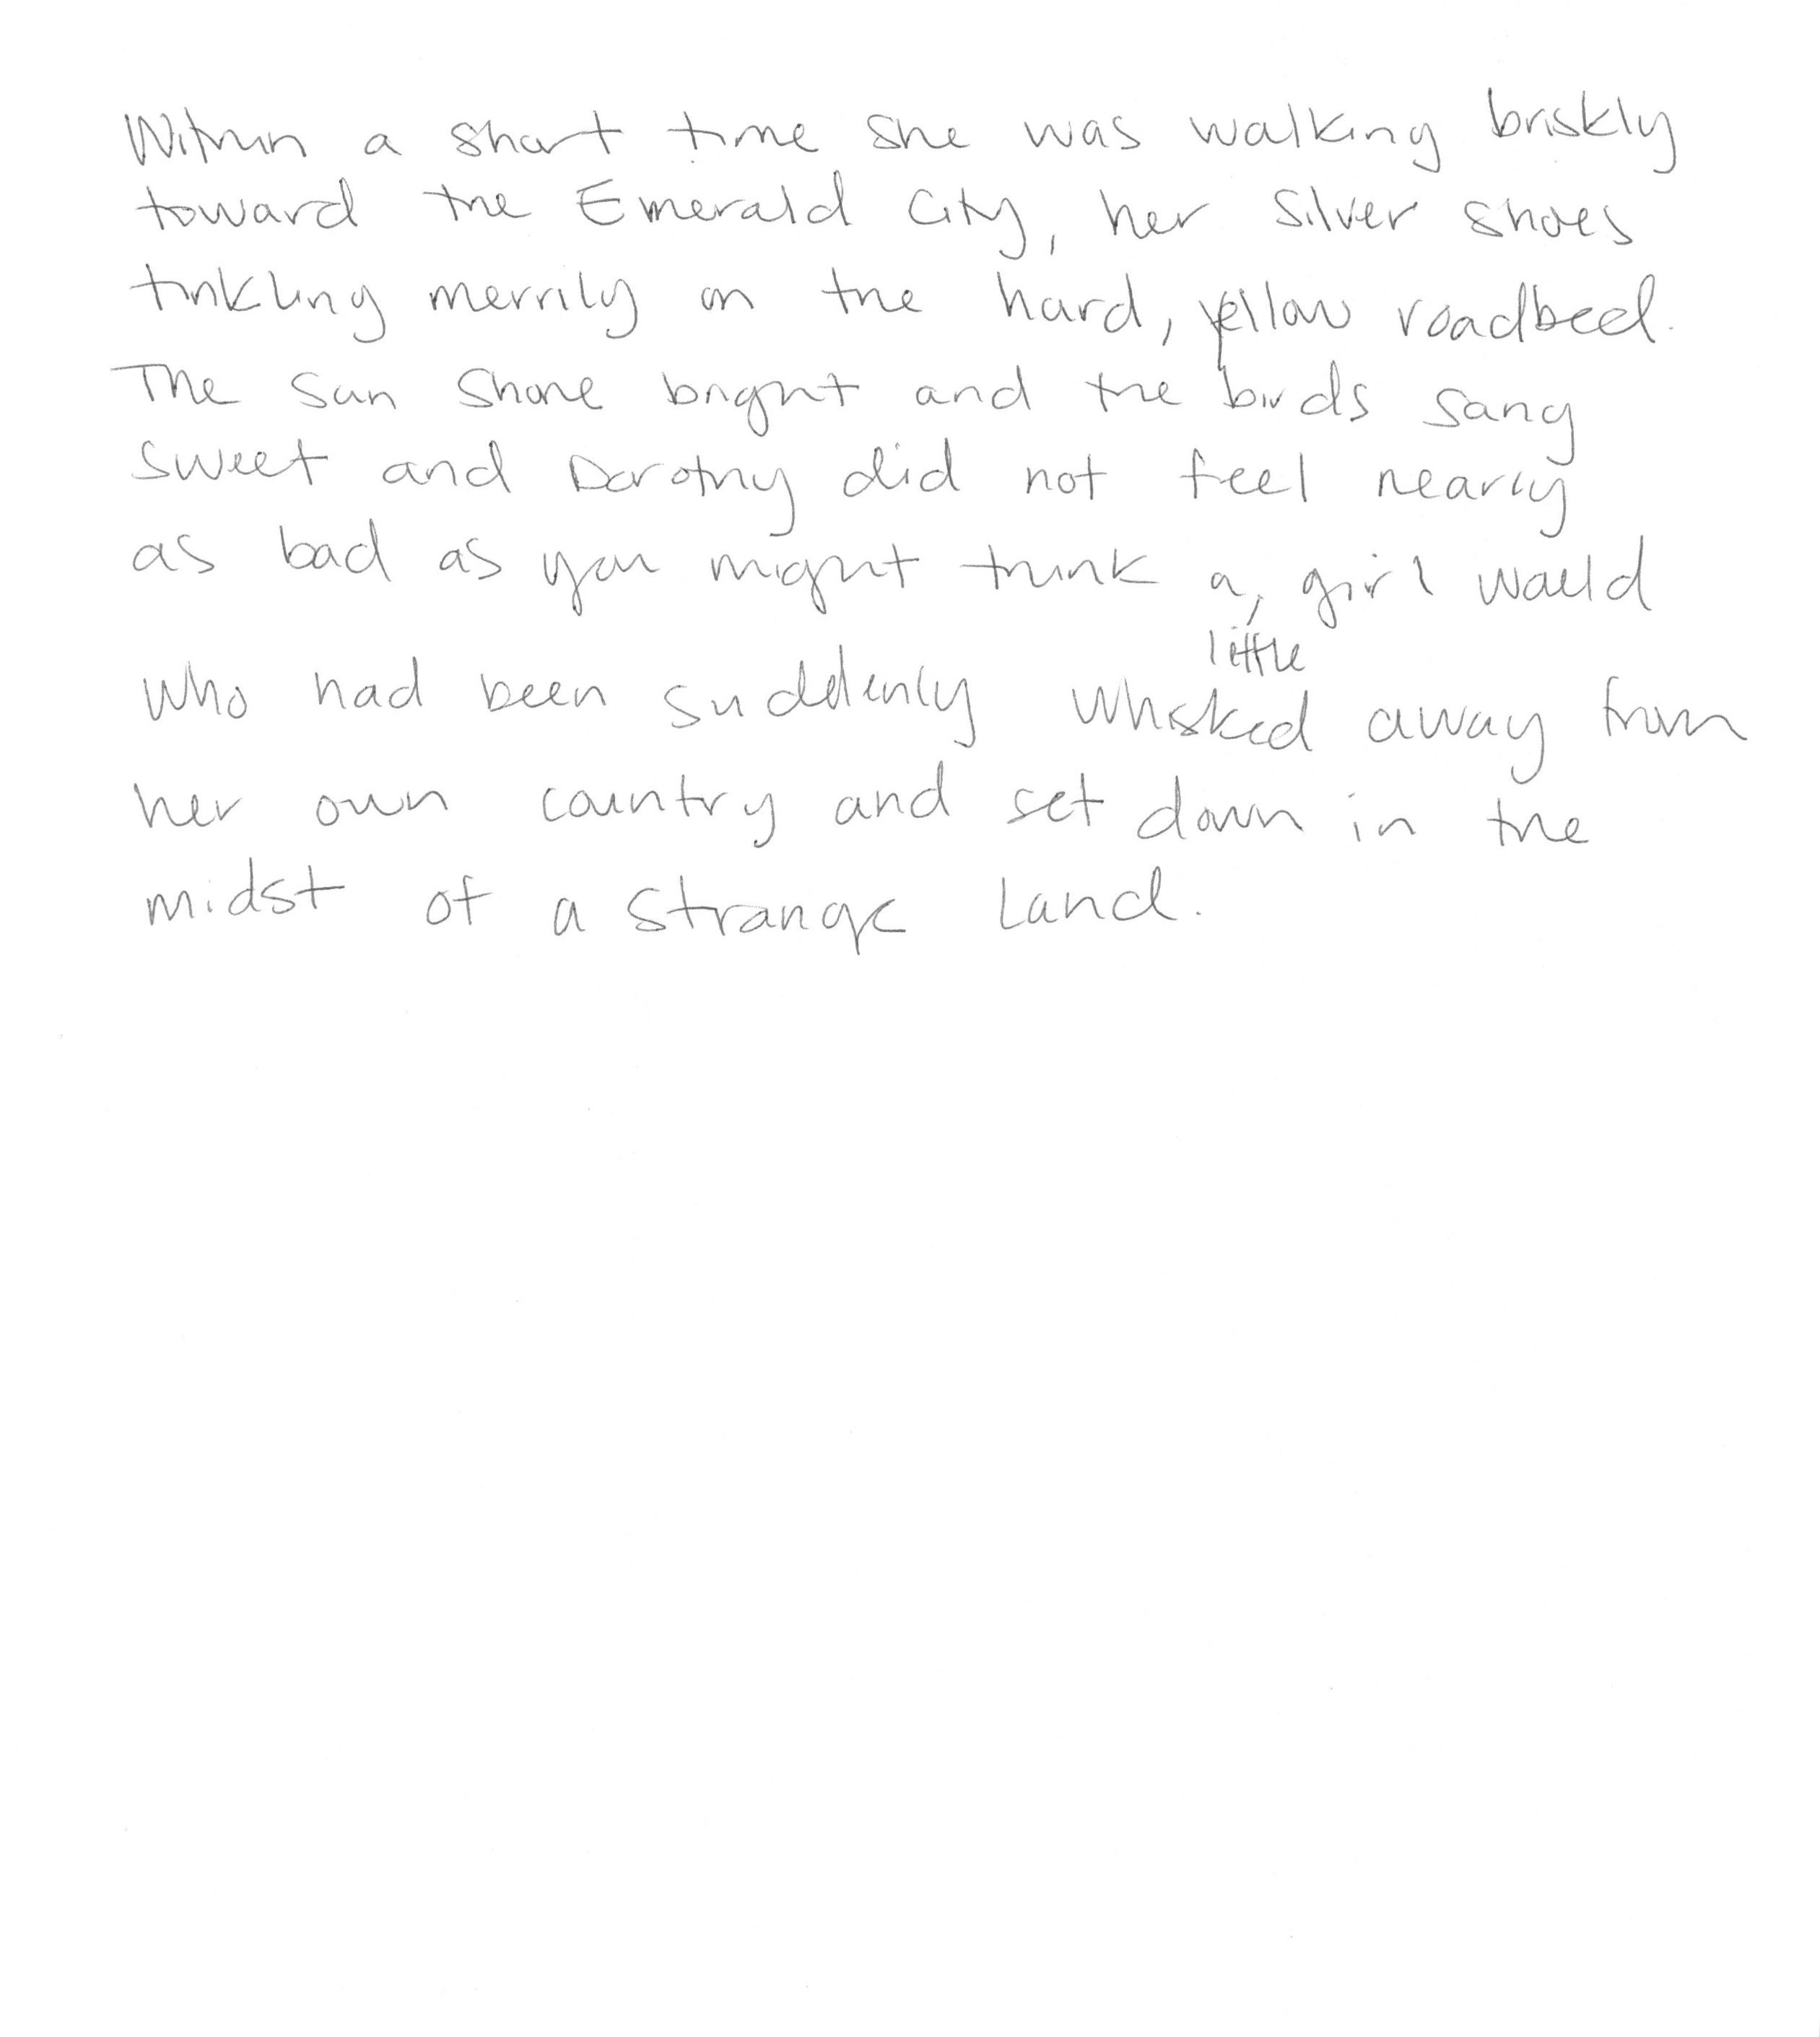 Within a short time she was walking briskly
toward the Emerald City, her silver shoes
tinkling merrily on the hard, yellow roadbed.
The sun shone bright and the birds sang
sweet and Dorothy did not feel nearly
as bad as you might think a little girl would
who had been suddenly whisked away from
her own country and set down in the
midst of a strange land.